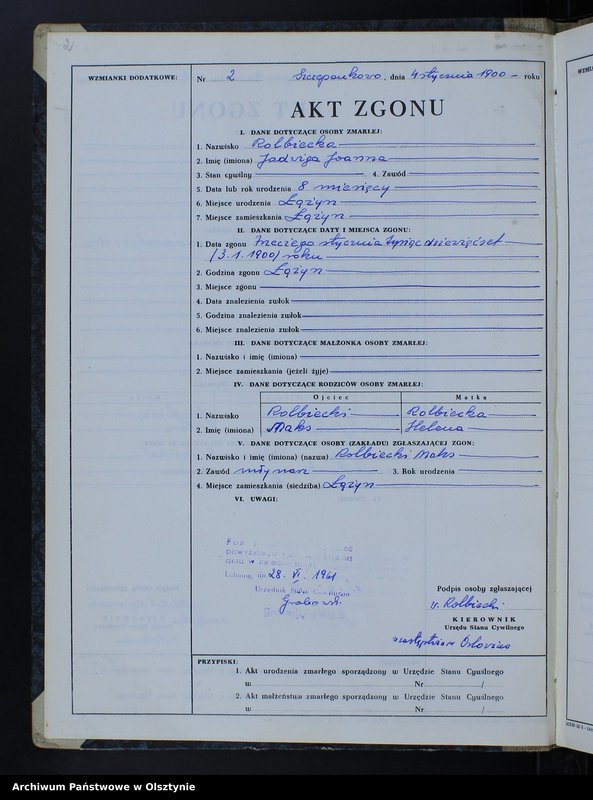 2
WZMIANKI DODATKOWE:
Nr 2 Szczepankowo, dnia 4 stycznia 1900 - roku
AKT ZGONU
I. DANE DOTYCZĄCE OSOBY ZMARŁEJ:
1. Nazwisko Rolbiecka
2. Imię (imiona) Jadwiga Joanna
3. Stan cywilny 4. Zawód
5. Data lub rok urodzenia 8 miesięcy
6. Miejsce urodzenia Łążyn
7. Miejsce zamieszkania Łążyn
II. DANE DOTYCZĄCE DATY I MIEJSCA ZGONU:
1. Data zgonu trzeciego stycznia tysiąc dziewięćset
(3.1.1900) roku
2. Godzina zgonu Łążyn
3. Miejsce zgonu
4. Data znalezienia zwłok
5. Godzina znalezienia zwłok
6. Miejsce znalezienia zwłok
III. DANE DOTYCZĄCE MAŁŻONKA OSOBY ZMARŁEJ:
1. Nazwisko i imię (imiona)
2. Miejsce zamieszkania (jeżeli żyje)
IV. DANE DOTYCZĄCE RODZICÓW OSOBY ZMARŁEJ:
Ojciec Matka
1. Nazwisko Rolbiecki Rolbiecka
2. Imię (imiona) Maks Helena
V. DANE DOTYCZĄCE OSOBY (ZAKŁADU) ZGŁASZAJĄCEJ ZGON:
1. Nazwisko i imię (imiona) (nazwa) Rolbiecki Maks
2. Zawód młynarz 3. Rok urodzenia
4. Miejsce zamieszkania (siedziba) Łążyn
VI. UWAGI:
Lubawa, dn. 28. VI. 1961
Urzędnik Stanu Cywilnego
Grabowski
Podpis osoby zgłaszającej
v. Rolbiecki
KIEROWNIK
Urzędu Stanu Cywilnego
PRZYPISKI:
1. Akt urodzenia zmarłego sporządzony w Urzędzie Stanu Cywilnego
w Nr /
2. Akt małżeństwa zmarłego sporządzony w Urzędzie Stanu Cywilnego
w Nr /
Archiwum Państwowe w Olsztynie